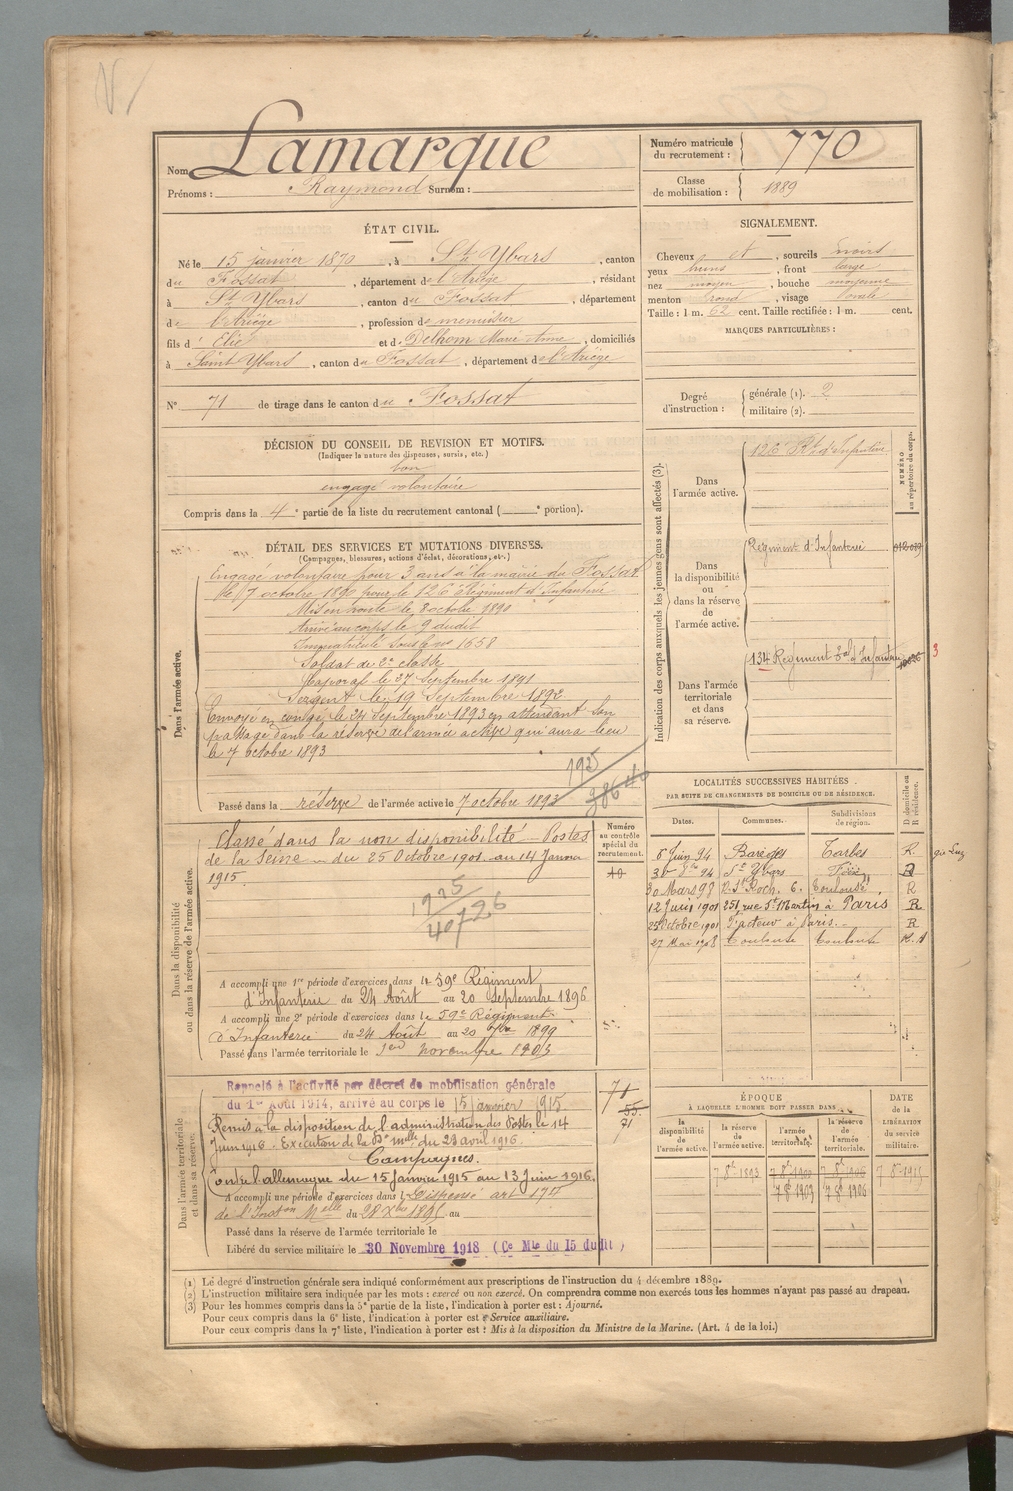 Nom Lamarque
Prénoms : Raymond Surnom :
Numéro matricule du recrutement : 770
Classe de mobilisation : 1889
ÉTAT CIVIL.
Né le 15 janvier 1870, à St Ybars, canton
du Fossat, département de l'Ariège, résidant
à St Ybars, canton du Fossat, département
de l'Ariège, profession de menuisier
fils d' Elie et de Delhom Marie Anne, domiciliés
à Saint Ybars, canton du Fossat, département de l'Ariège
N° 71 de tirage dans le canton du Fossat
SIGNALEMENT.
Cheveux et, sourcils noirs
yeux bruns, front large
nez moyen, bouche moyenne
menton rond, visage ovale
Taille : 1 m. 62 cent. Taille rectifiée : 1 m. cent.
MARQUES PARTICULIÈRES :
Degré d'instruction : générale (1). 2
militaire (2).
DÉCISION DU CONSEIL DE REVISION ET MOTIFS.
(Indiquer la nature des dispenses, sursis, etc.)
bon
engagé volontaire
Compris dans la 4e partie de la liste du recrutement cantonal ( e portion).
Indication des corps auxquels les jeunes gens sont affectés (3).
NUMÉRO au répertoire du corps.
Dans l'armée active.
126 Rt d'Infanterie
Dans la disponibilité ou dans la réserve de l'armée active.
Régiment d'Infanterie
Dans l'armée territoriale et dans sa réserve.
134 Régiment Tal d'Infanterie
3
DÉTAIL DES SERVICES ET MUTATIONS DIVERSES.
(Campagnes, blessures, actions d'éclat, décorations, etc.)
Dans l'armée active.
Engagé volontaire pour 3 ans à la mairie du Fossat
le 7 octobre 1890 pour le 126e Régiment d'Infanterie
Mis en route le 8 octobre 1890
Arrivé au corps le 9 dudit
Immatriculé sous le no 1658
Soldat de 2e classe
Caporal le 27 Septembre 1891
Sergent le 19 Septembre 1892
Envoyé en congé le 24 Septembre 1893 en attendant son
passage dans la réserve de l'armée active qui aura lieu
le 7 octobre 1893
Passé dans la réserve de l'armée active le 7 octobre 1893
Numéro au contrôle spécial du recrutement.
Dans la disponibilité ou dans la réserve de l'armée active.
Classé dans la non disponibilité - Postes
de la Seine - du 25 Octobre 1901 au 14 Janvier
1915.
1925
40726
A accompli une 1re période d'exercices dans le 59e Régiment
d'Infanterie du 24 Août au 20 Septembre 1896
A accompli une 2e période d'exercices dans le 59e Régiment
d'Infanterie du 24 Août au 20 7bre 1899
Passé dans l'armée territoriale le 1er novembre 1903
LOCALITÉS SUCCESSIVES HABITÉES
PAR SUITE DE CHANGEMENTS DE DOMICILE OU DE RÉSIDENCE.
Dates. Communes. Subdivisions de région. D domicile ou R résidence.
6 Juin 94 Barèges Tarbes R.
St Ybars Foix R
30 Mars 98 St Roch. 6. Toulouse R
12 Juin 1901 251 rue St Martin à Paris R
25 Octobre 1901 Facteur à Paris. R
27 Mai 1908 Toulouse Toulouse
Dans l'armée territoriale et dans sa réserve.
Rappelé à l'activité par décret de mobilisation générale
du 1er Août 1914, arrivé au corps le 15 Janvier 1915
Remis à la disposition de l'administration des Postes le 14
Juin 1916. Exécution de la Dn mlle du 23 avril 1916.
Campagnes.
Contre l'allemagne du 15 Janvier 1915 au 13 Juin 1916.
A accompli une période d'exercices dans l Dispensé art 174
de l'Inston Melle du 28 Xbre 1895 au
Passé dans la réserve de l'armée territoriale le
Libéré du service militaire le 30 Novembre 1918 (Ce Mle du 15 dudit)
71
55
71
ÉPOQUE
À LAQUELLE L'HOMME DOIT PASSER DANS
la disponibilité de l'armée active. la réserve de l'armée active. l'armée territoriale. la réserve de l'armée territoriale.
DATE de la LIBÉRATION du service militaire.
7 8bre 1893
7 8bre 1903 7 8bre 1906
(1) Le degré d'instruction générale sera indiqué conformément aux prescriptions de l'instruction du 4 décembre 1889.
(2) L'instruction militaire sera indiquée par les mots : exercé ou non exercé. On comprendra comme non exercés tous les hommes n'ayant pas passé au drapeau.
(3) Pour les hommes compris dans la 5e partie de la liste, l'indication à porter est : Ajourné.
Pour ceux compris dans la 6e liste, l'indication à porter est : Service auxiliaire.
Pour ceux compris dans la 7e liste, l'indication à porter est : Mis à la disposition du Ministre de la Marine. (Art. 4 de la loi.)